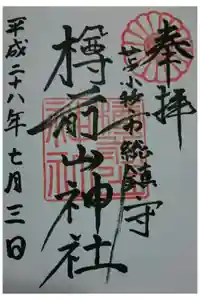 奉拝
苫小牧市総鎮守
樽前山神社
平成二十八年七月三日